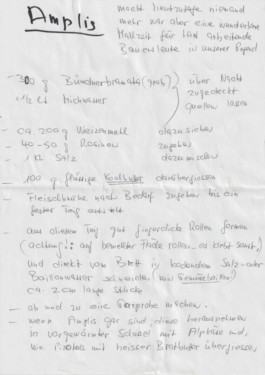 Amplis
macht heutzutage niemand
mehr war aber eine wunderbare
Mahlzeit für hart arbeitende
Bauersleute in unserer Jugend
300 g Bündnerbramata (grob) über Nacht
1/2 Lt Milchwasser zugedeckt
quellen lassen
- ca. 200 g Weizenmehl dazusieben
- 40-50 g Rosinen zugeben
- 1 KL Salz dazumischen
- 100 g flüssige Kochbutter darübergiessen
- Fleischbrühe nach Bedarf zugeben bis ein
fester Teig entsteht
- aus diesem Teig gut fingerdicke Rollen formen
(Achtung!: auf bemehlter Fläche rollen, es klebt sonst)
und direkt vom Brett in kochendem Salz- oder
Bouillonwasser schneiden
ca. 2 cm lange Stücke
- ab und zu eine Garprobe machen.
- wenn Amplis gar sind diese herausnehmen
in vorgewärmter Schüssel mit Alpkäse und
mit heisser Bratbutter übergiessen